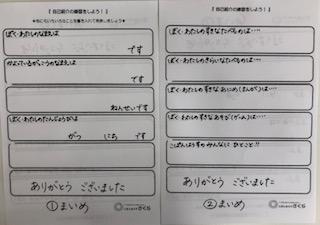 【 自己紹介の練習をしよう！ 】
ぼく・わたしのなまえは
です
かよっているがっこうのなまえは
です
ねんせいです
ぼく・わたしのたんじょうびは
がつ にち です
ありがとう ございました
①まいめ
さくら
【 自己紹介の練習をしよう！ 】
ぼく・わたしのすきなたべものは…
ぼく・わたしのきらいなたべものは…
ぼく・わたしの すきな あにめ（まんが）は…
ぼく・わたしの すきな あそび（げーむ）は…
こばんはうすの みんなに ひとこと!!
ありがとう ございました
②まいめ
さくら